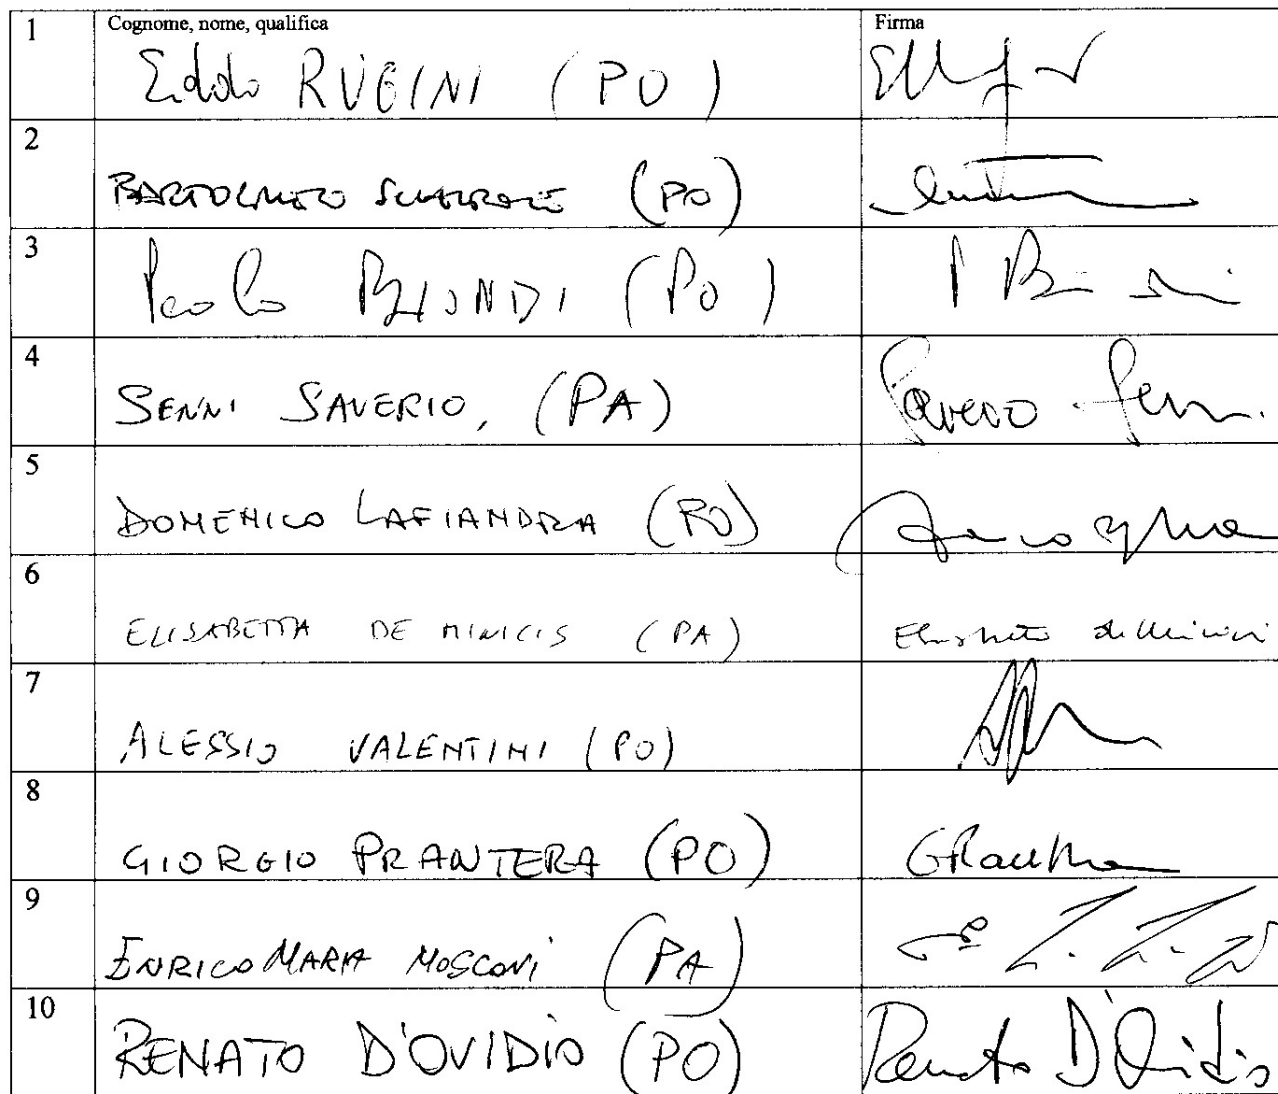 1 Cognome, nome, qualifica Firma
Eddo RUGINI (PO)
2
BARTOLOMEO (PO)
3
Paolo BIONDI (PO) P
4
SENNI SAVERIO, (PA) Saverio Senni
5
DOMENICO LAFIANDRA (PO)
6
ELISABETTA DE MINICIS (PA) Elisabetta De Minicis
7
ALESSIO VALENTINI (PO)
8
GIORGIO PRANTERA (PO) GPrantera
9
ENRICO MARIA MOSCONI (PA)
10
RENATO D'OVIDIO (PO) Renato D'Ovidio